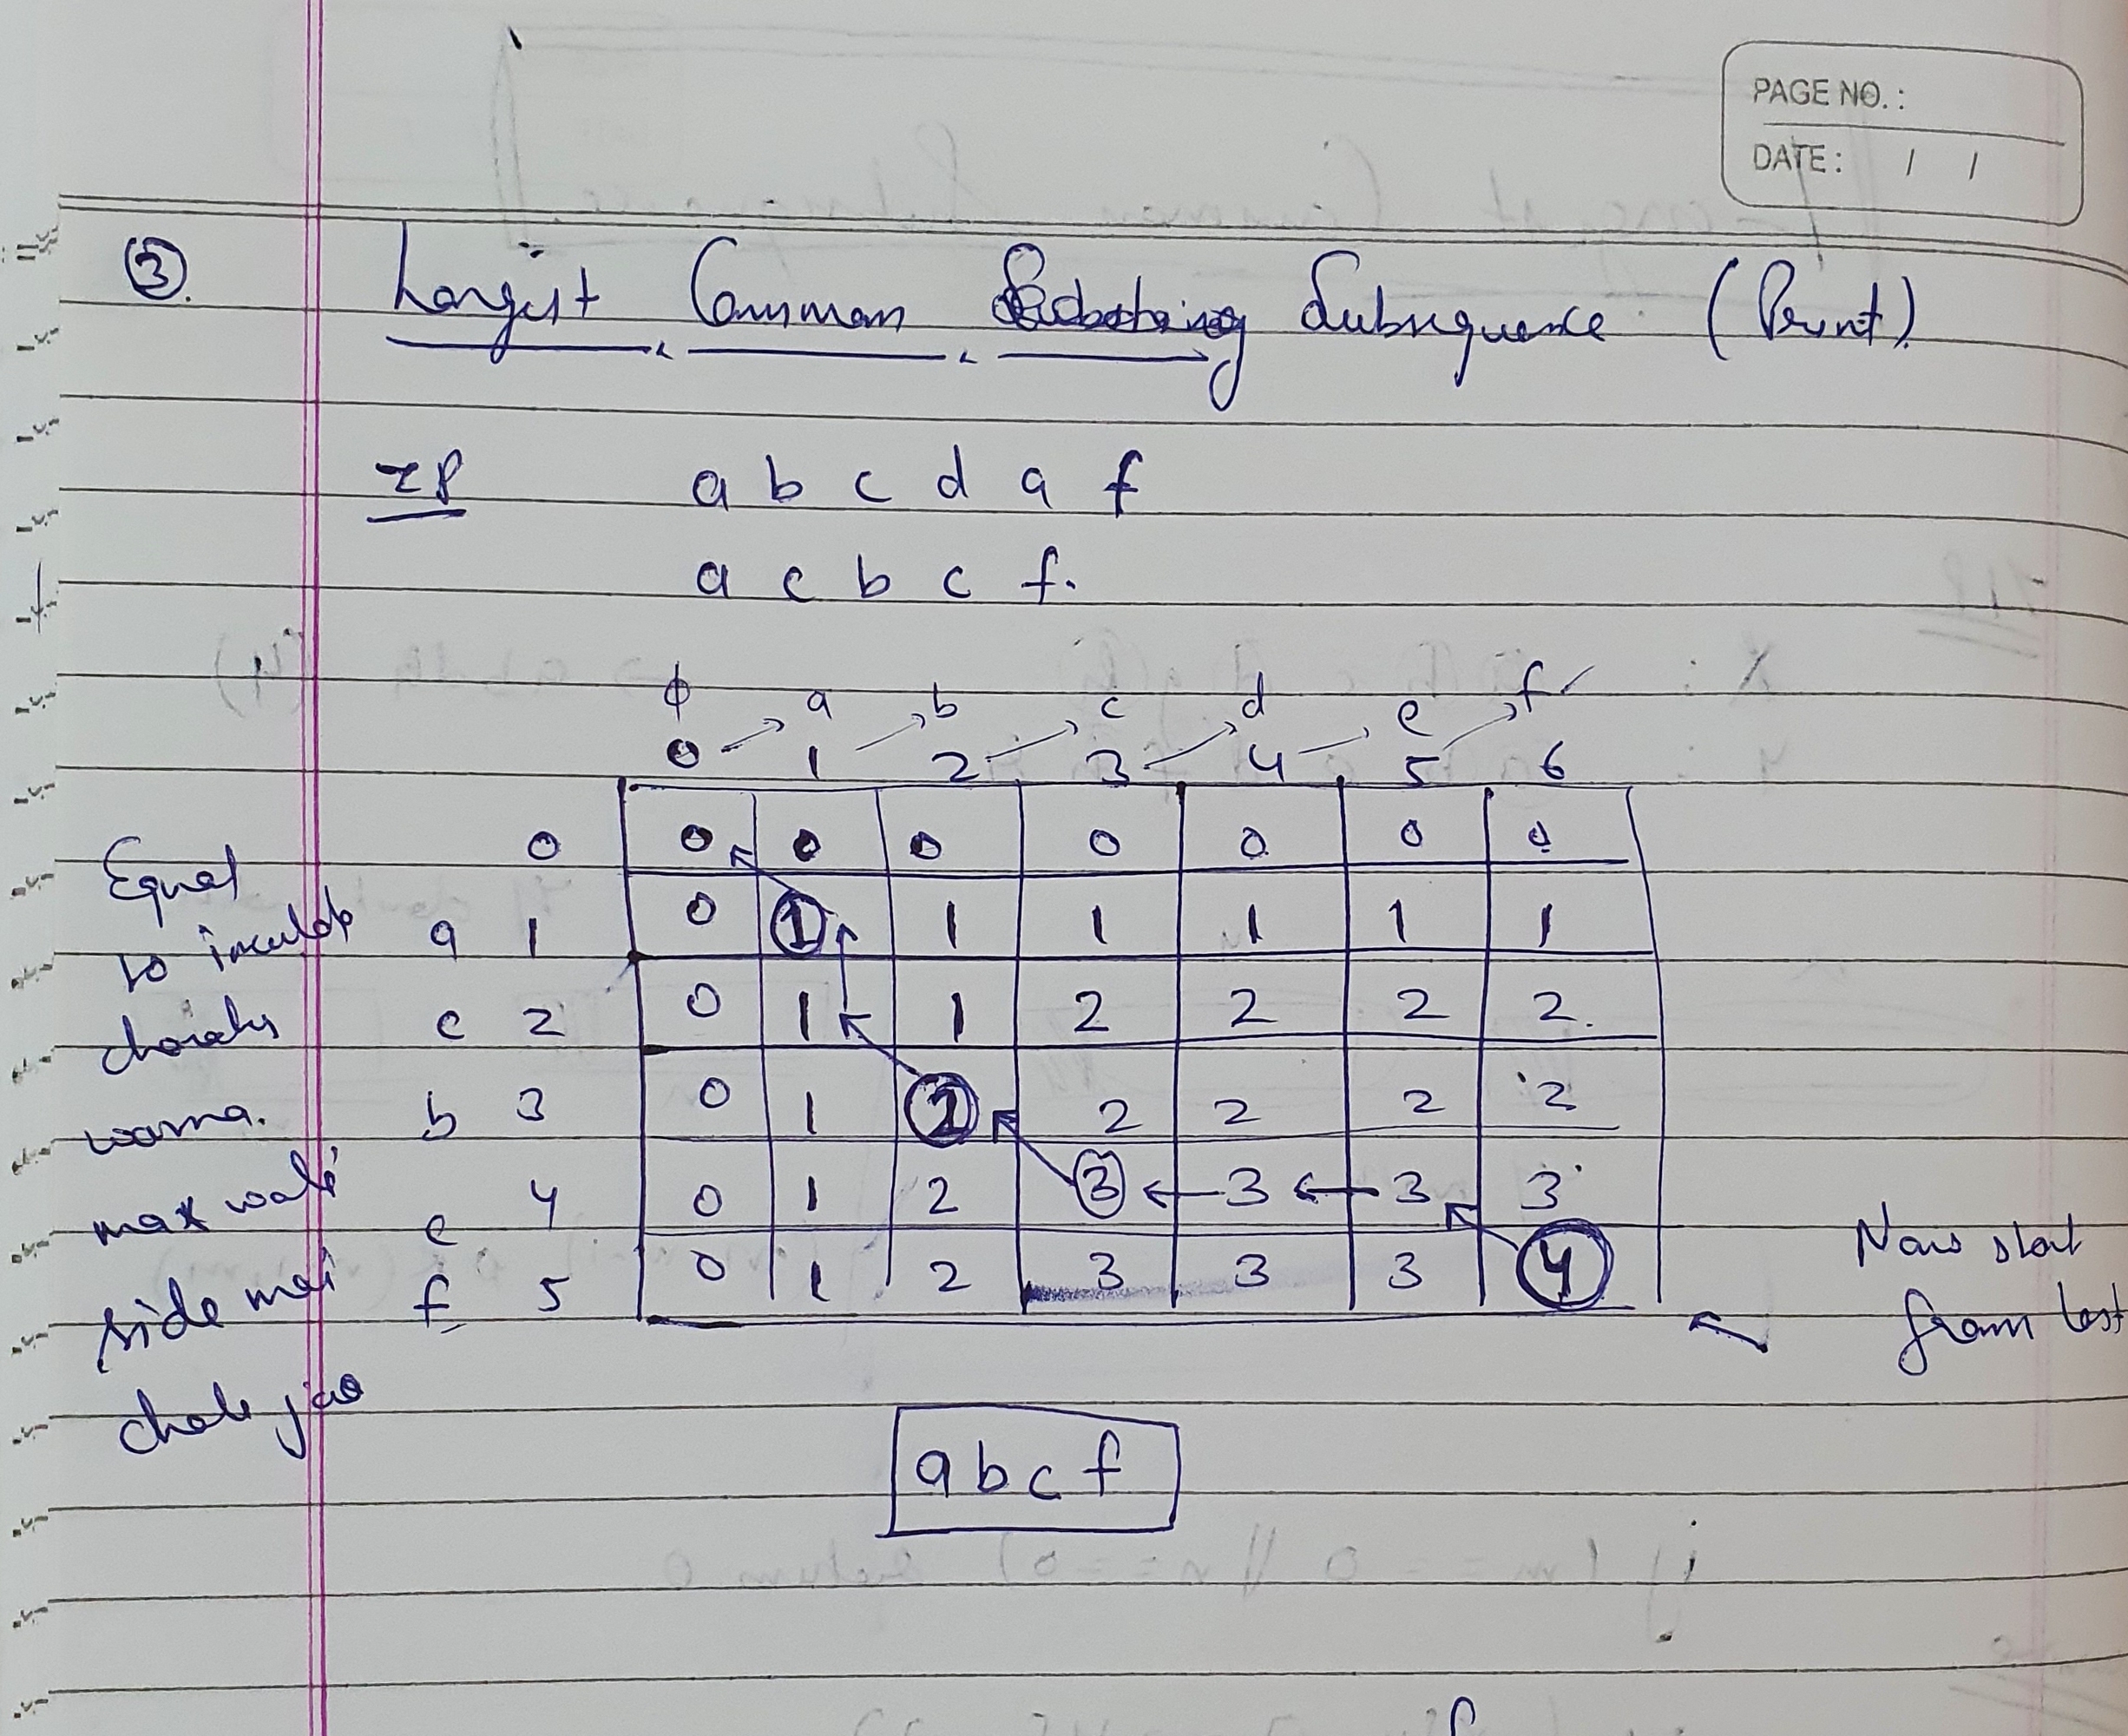 PAGE NO. :
DATE : / /
③. Longest Common Subsequence (Print)
IP a b c d a f
a c b c f.
ϕ a b c d e f
0 1 2 3 4 5 6
0 0 0 0 0 0 0 0
a 1 0 1 1 1 1 1 1
c 2 0 1 1 2 2 2 2
b 3 0 1 2 2 2 2 2
c 4 0 1 2 3 3 3 3
f 5 0 1 2 3 3 3 4
Equal
to
warna.
max wale
side mai
chale jao
Now start
from last
a b c f